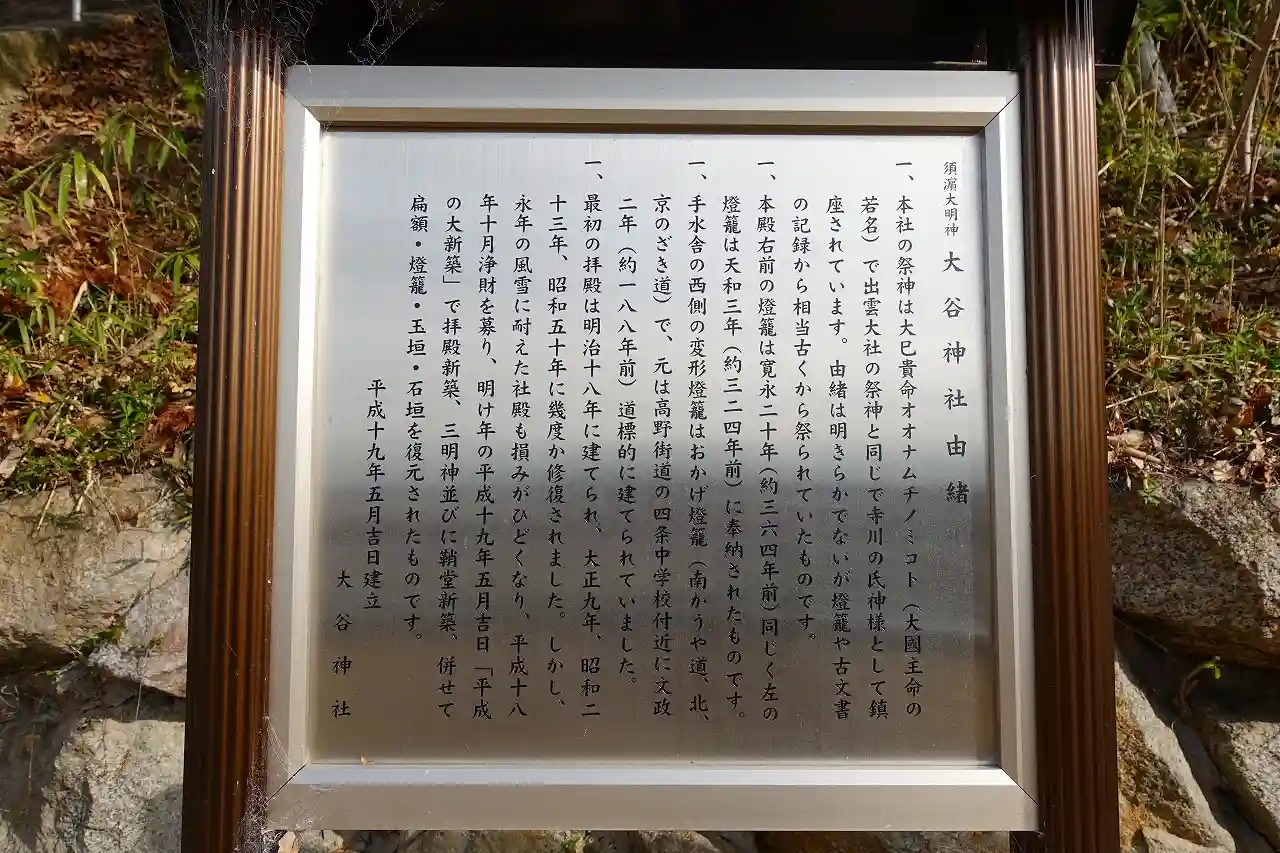 須濵大明神 大谷神社由緒
一、本社の祭神は大巳貴命オオナムチノミコト（大國主命の
若名）で出雲大社の祭神と同じで寺川の氏神様として鎮
座されています。由緒は明きらかでないが燈籠や古文書
の記録から相当古くから祭られていたものです。
一、本殿右前の燈籠は寛永二十年（約三六四年前）同じく左の
燈籠は天和三年（約三二四年前）に奉納されたものです。
一、手水舎の西側の変形燈籠はおかげ燈籠（南かうや道、北、
京のざき道）で、元は高野街道の四条中学校付近に文政
二年（約一八八年前）道標的に建てられていました。
一、最初の拝殿は明治十八年に建てられ、大正九年、昭和二
十三年、昭和五十年に幾度か修復されました。しかし、
永年の風雪に耐えた社殿も損みがひどくなり、平成十八
年十月浄財を募り、明け年の平成十九年五月吉日「平成
の大新築」で拝殿新築、三明神並びに鞘堂新築、併せて
扁額・燈籠・玉垣・石垣を復元されたものです。
平成十九年五月吉日建立
大谷神社